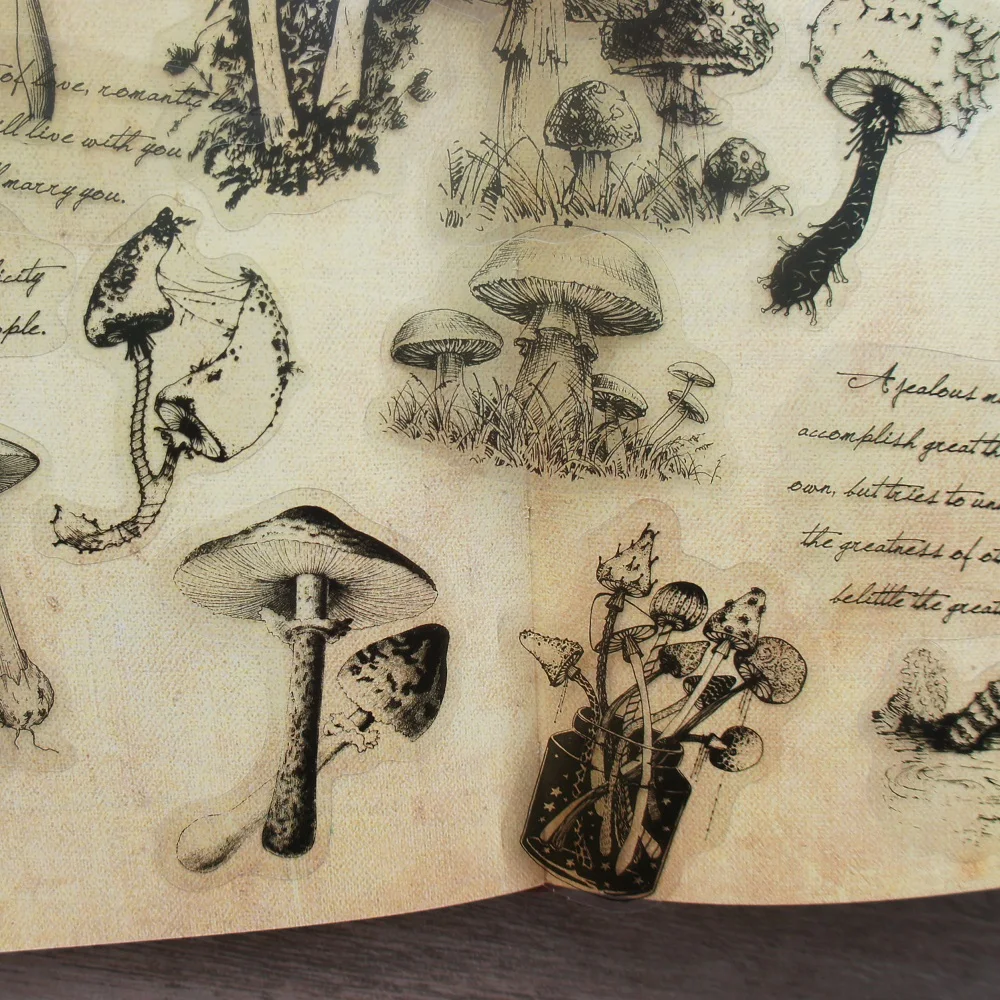 of love, romantic
ll live with you
marry you.
icity
ple.
A jealous m
accomplish great th
own, but tries to un
the greatness of o
belittle the grea